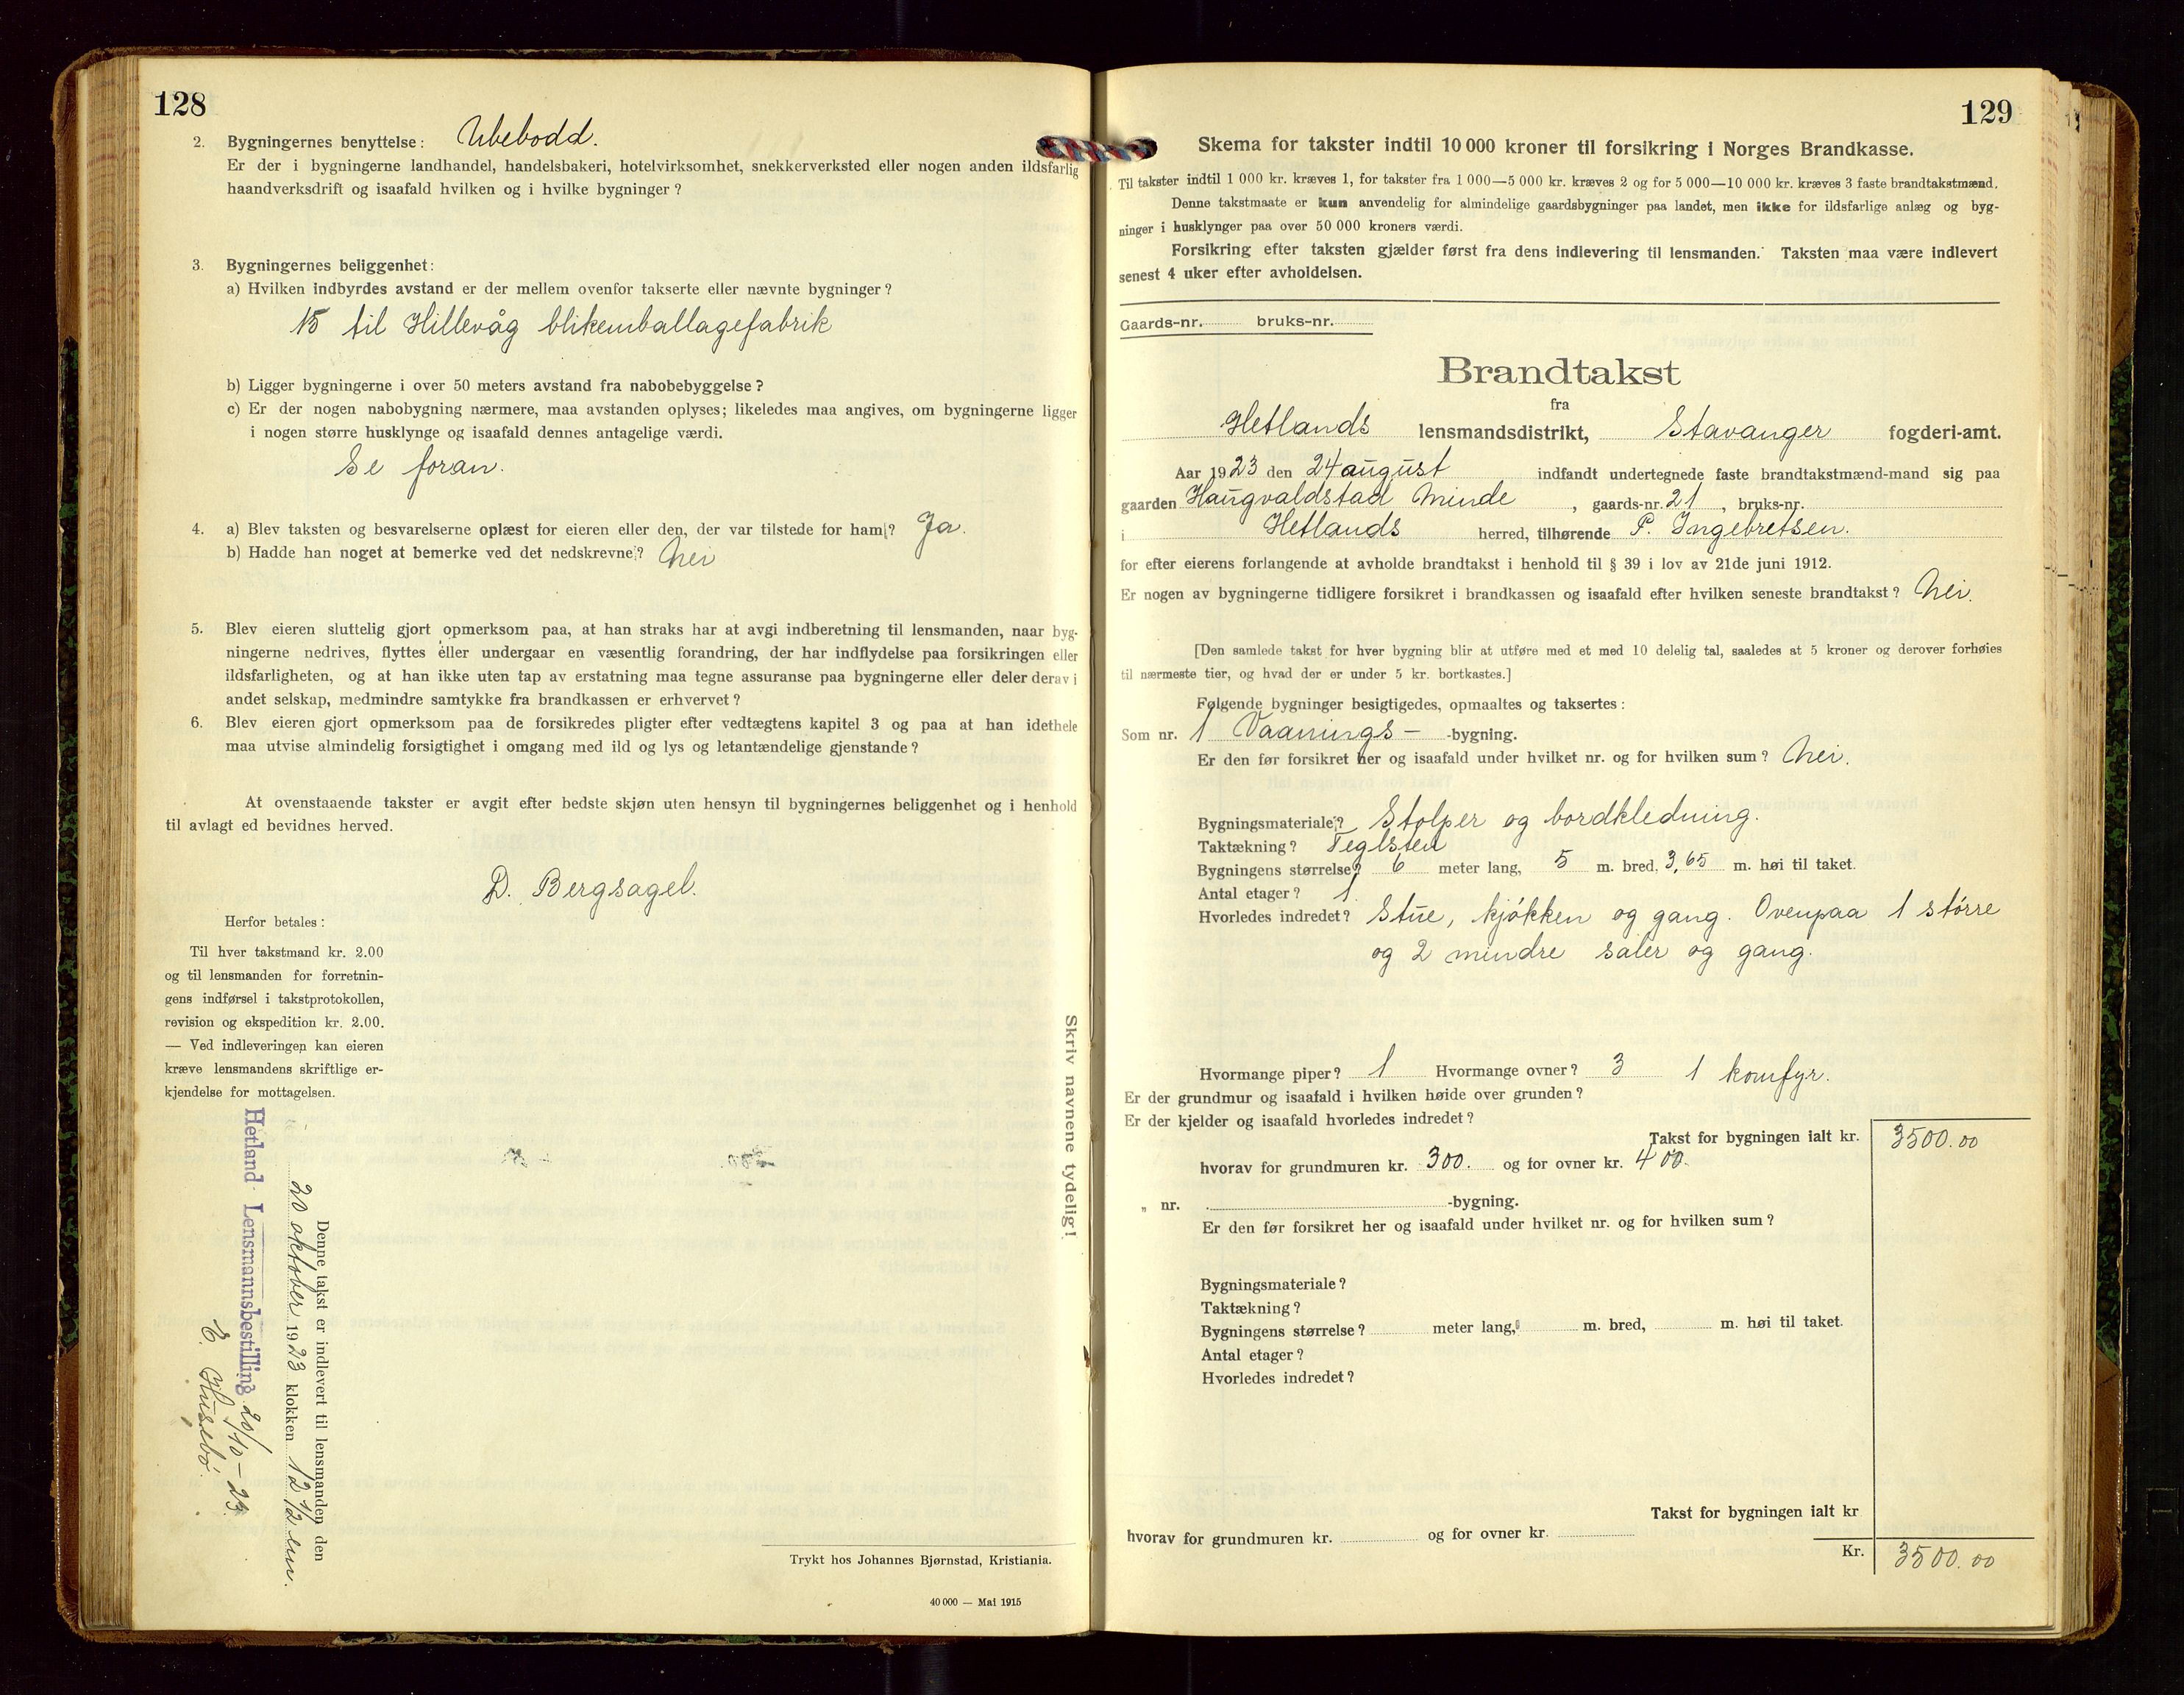 128
2. Bygningernes benyttelse: Ubebodd.
Er der i bygningerne landhandel, handelsbakeri, hotelvirksomhet, snekkerverksted eller nogen anden ildsfarlig
haandverksdrift og isaafald hvilken og i hvilke bygninger?
3. Bygningernes beliggenhet:
a) Hvilken indbyrdes avstand er der mellem ovenfor takserte eller nævnte bygninger?
15 til Hillevåg blikemballagefabrik
b) Ligger bygningerne i over 50 meters avstand fra nabobebyggelse?
c) Er der nogen nabobygning nærmere, maa avstanden oplyses; likeledes maa angives, om bygningerne ligger
i nogen større husklynge og isaafald dennes antagelige værdi.
Se foran.
4. a) Blev taksten og besvarelserne oplæst for eieren eller den, der var tilstede for ham? Ja.
b) Hadde han noget at bemerke ved det nedskrevne? Nei
5. Blev eieren sluttelig gjort opmerksom paa, at han straks har at avgi indberetning til lensmanden, naar byg-
ningerne nedrives, flyttes eller undergaar en væsentlig forandring, der har indflydelse paa forsikringen eller
ildsfarligheten, og at han ikke uten tap av erstatning maa tegne assuranse paa bygningerne eller deler derav i
andet selskap, medmindre samtykke fra brandkassen er erhvervet?
6. Blev eieren gjort opmerksom paa de forsikredes pligter efter vedtægtens kapitel 3 og paa at han idethele
maa utvise almindelig forsigtighet i omgang med ild og lys og letantændelige gjenstande?
At ovenstaaende takster er avgit efter bedste skjøn uten hensyn til bygningernes beliggenhet og i henhold
til avlagt ed bevidnes herved.
D. Bergsagel.
Herfor betales:
Til hver takstmand kr. 2.00
og til lensmanden for forretnin-
gens indførsel i takstprotokollen,
revision og ekspedition kr. 2.00.
— Ved indleveringen kan eieren
kræve lensmandens skriftlige er-
kjendelse for mottagelsen.
Skriv navnene tydelig!
Denne takst er indlevert til lensmanden den
20 oktober 1923 klokken 12 1/2 em.
Hetland Lensmannsbestilling 20/10-23.
E. Husebö.
Trykt hos Johannes Bjørnstad, Kristiania.
40 000 — Mai 1915
129
Skema for takster indtil 10 000 kroner til forsikring i Norges Brandkasse.
Til takster indtil 1 000 kr. kræves 1, for takster fra 1 000—5 000 kr. kræves 2 og for 5 000—10 000 kr. kræves 3 faste brandtakstmænd.
Denne takstmaate er kun anvendelig for almindelige gaardsbygninger paa landet, men ikke for ildsfarlige anlæg og byg-
ninger i husklynger paa over 50 000 kroners værdi.
Forsikring efter taksten gjælder først fra dens indlevering til lensmanden. Taksten maa være indlevert
senest 4 uker efter avholdelsen.
Gaards-nr. bruks-nr.
Brandtakst
fra
Hetlands lensmandsdistrikt, Stavanger fogderi-amt.
Aar 1923 den 24 august indfandt undertegnede faste brandtakstmænd-mand sig paa
gaarden Haugvaldstad Minde, gaards-nr. 21, bruks-nr.
i Hetlands herred, tilhørende P. Ingebretsen.
for efter eierens forlangende at avholde brandtakst i henhold til § 39 i lov av 21de juni 1912.
Er nogen av bygningerne tidligere forsikret i brandkassen og isaafald efter hvilken seneste brandtakst? Nei.
[Den samlede takst for hver bygning blir at utføre med et med 10 delelig tal, saaledes at 5 kroner og derover forhøies
til nærmeste tier, og hvad der er under 5 kr. bortkastes.]
Følgende bygninger besigtigedes, opmaaltes og taksertes:
Som nr. 1 Vaanings- -bygning.
Er den før forsikret her og isaafald under hvilket nr. og for hvilken sum? Nei.
Bygningsmateriale? Stolper og bordkledning.
Taktækning? Teglsten
Bygningens størrelse? 6 meter lang, 5 m. bred, 3,65 m. høi til taket.
Antal etager? 1.
Hvorledes indredet? Stue, kjökken og gang. Ovenpaa 1 större
og 2 mindre saler og gang.
Hvormange piper? 1 Hvormange ovner? 3 1 komfyr.
Er der grundmur og isaafald i hvilken høide over grunden?
Er der kjelder og isaafald hvorledes indredet?
Takst for bygningen ialt kr. 3500.00
hvorav for grundmuren kr. 300. og for ovner kr. 400.
„ nr. -bygning.
Er den før forsikret her og isaafald under hvilket nr. og for hvilken sum?
Bygningsmateriale?
Taktækning?
Bygningens størrelse? meter lang, m. bred, m. høi til taket.
Antal etager?
Hvorledes indredet?
Takst for bygningen ialt kr
hvorav for grundmuren kr. og for ovner kr.
Kr. 3500.00